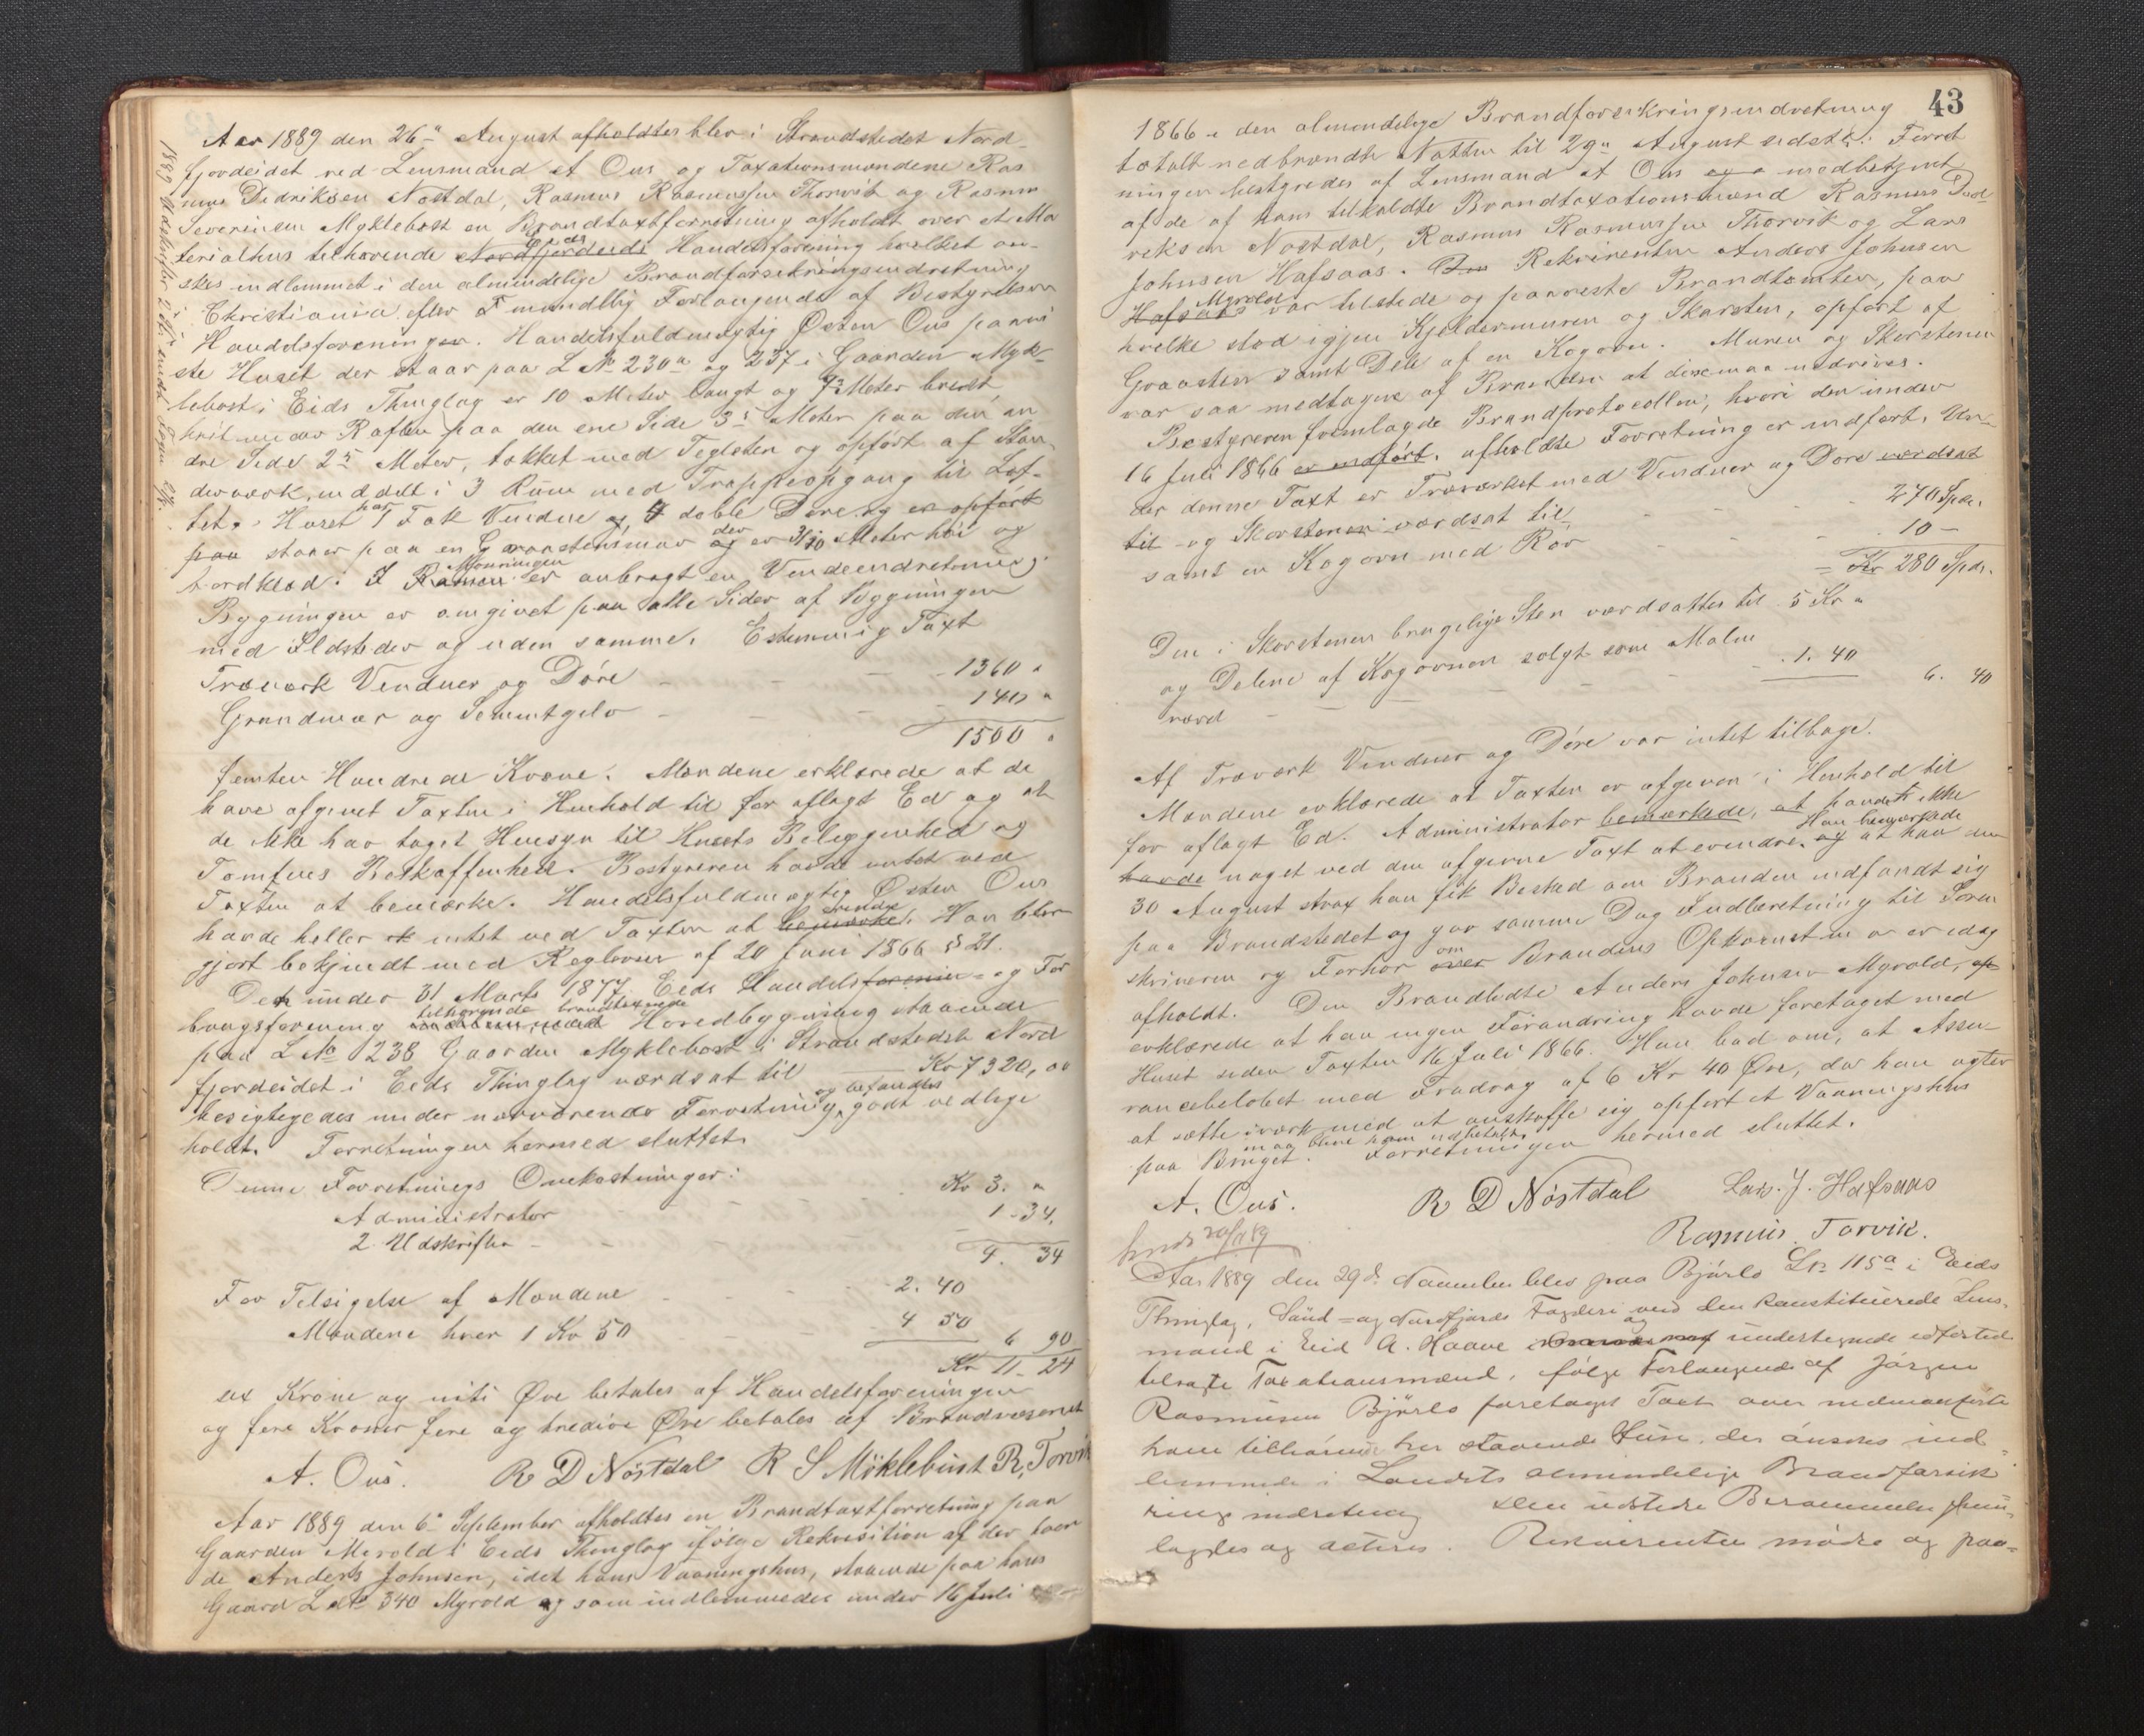 Aar 1889 den 26de August afholdtes blev i Strandstedet Nord-
fjordeidet ved Lensmand A Ous og Taxationsmændene Ras
mus Didriksen Nøstdal, Rasmus Rasmussen Thorvik og Rasmus
Severinsen Myklebost en Brandtaxtforretning afholdt over et Ma
terialhus tilhørende Nordfjordeids Eids Handelsforening hvilket øn-
skes indlemmet i den almindelige Brandforsikringsindretning
Christiania efter mundtlig Forlangende af Bestyrelsen
Handelsforeningen. Handelsfuldmægtig Østen Ous paavi
ste Huset der staar paa L No 230a og 237 i Gaarden Myk-
lebost i Eids Thinglag er 10 Meter langt og 7 Meter bredt,
høit under Raften paa den ene Side 3 Meter paa den an
dre Side 2 Meter, tækket med Teglsten og opført af Stan
derværk, inddelt i 3 Rum med Trappeopgang til Lof-
tet. Huset har 1 Fak Vindue og 4 doble Døre og er opført
paa staaer paa en Graastensmur og der er 3/10 Meter høi og
bordklæd. I Mønningen er anbragt en Vindeindretning.
Bygningen er omgivet paa alle Sider af Bygninger
med Ildsteder og uden samme. Eskning Taxt
Træværk Vinduer og Døre - - - 1360 "
Grundmur og Sementgolv - - - 140 "
1500 "
femten Hundrede Krone. Mændene erklærede at de
have afgivet Taxten i Henhold til før aflagt Ed og at
de ikke har taget Hensyn til Husets Beliggenhed og
Tomtens Beskaffenhed. Bestyreren havde intet ved
Taxten at bemærke. Handelsfuldmægtig Østen Ous
havde heller intet ved Taxten at bemærke. Han blev
gjort bekjendt med Reglerne af 20 Juni 1866 § 21.
Den under 31 Marts 1877 Eids Handelsforenin- og For
brugsforening tilhørende brandtaxerede Hovedbygning staaende
paa L No 238 Gaarden Myklebost i Strandstedet Nord
fjordeidet i Eids Thinglag værdsat til Kr 7320,00
besigtigedes under nærværende Forretning og befandtes godt vedlige
holdt. Forretningen hermed sluttet.
Denne Forretnings Omkostninger:
Administrator Kr 3. "
2 Udskrifter - - - 1-34.
4. 34
For Tilsigelse af Mændene - - - 2. 40
Mændene hver 1 Kr 50 - 4 50
6 90
Kr 11-24
sex Krone og niti Øre betales af Handelsforeningen
og fire Kroner fire og tredive Øre betales af Brandvæsenet
A. Ous. R D Nöstdal R S Möklebust R, Torvik
Aar 1889 den 6te September afholdtes en Brandtaxtforretning paa
Gaarden Myrold i Eids Thinglag ifølge Rekvisition af der boen
de Anders Johnsen, idet hans Vaaningshus, staaende paa hans
Gaard L No 340 Myrold og som indlemmedes under 16 Juli
43
1866 i den almindelige Brandforsikringsindretning
totalt nedbrændte Natten til 29de August sidstl. Forret
ningen bestyredes af Lensmand A Ous og medbetjent
af de af ham tilkaldte Brandtaxationsmænd Rasmus Did
reksen Nøstdal, Rasmus Rasmussen Thorvik og Lars
Johnsen Hafsaas. Den Rekvirenten Anders Johnsen
Hafsaas Myrold var tilstede og paaviste Brandtomten, paa
hvilke stod igjen Kjeldermuren og Skorsten, opført af
Graasten samt Dele af en Kogovn. Muren og Skorstenen
var saa medtagne af Branden at disse maa nedrives.
Bestyreren fremlagde Brandprotocollen, hvori den under
16 Juli 1866 er indført. afholdte Forretning er indført. Un-
der denne Taxt er Træværket med Vinduer og Døre værdsat
til og Skorstenen værdsat til - - - 270 Spd.
samt en Kogovn med Rør - - - 10 -
= Kr 280 Spdr.
Den i Skorstenen brugelige Sten værdsattes til 5 Kr "
og Delene af Kogovnen solgt som Malm
værd - - - 1. 40
6. 40
Af Træværk Vinduer og Døre var intet tilbage.
Mændene erklærede at Taxten er afgiven i Henhold til
før aflagt Ed. Administrator bemærkede, at havde ikke
havde noget ved den afgivne Taxt at erindre. Han bemærkede og at han den
30 August strax han fik Besked om Branden indfandt sig
paa Brandstedet og gav samme Dag Indberetning til Soren
skriveren og Forhør over om Brandens Opkomst er idag
afholdt. Den Brandlidte Anders Johnsen Myrold,
erklærede at han ingen Forandring havde foretaget med
Huset siden Taxten 16 Juli 1866. Han bad om, at Assu
rancebeløbet med Fradrag af 6 Kr 40 Øre, da han agter
at sætte iværk med at anskaffe sig opført et Vaaningshus
paa Bruget. maa blive ham udbetalt. Forretningen hermed sluttet.
A. Ous. R D Nöstdal Lars. J. Hafsaas
Rasmus Torvik.
Aar 1889 den 29d. November blev paa Bjørlo Lno 115a i Eids
Thinglag, Sønd- og Nordfjords Fogderi ved den konstituerede Lens-
mand i Eid A. Haave og undertegnede edfæstede
tilsagte Taxationsmænd, følge Forlangende af Jørgen
Rasmusen Bjørlo foretaget Taxt over nedenanførte
ham tilhørende her staaende Huse, der ønskes ind-
lemmede i Landets almindelige Brandforsik
rings indretning
lagdes og acteres. Rekvirenten mødte og paa-